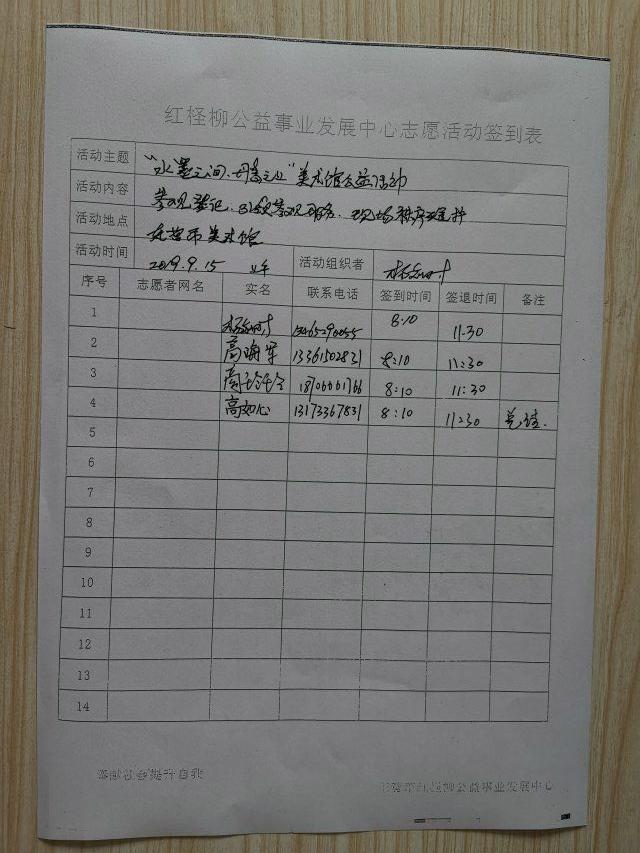 红柽柳公益事业发展中心志愿活动签到表
活动主题 "水墨之间、丹青之上"美术馆公益活动
活动内容 参观登记、引领参观服务、现场秩序维护
活动地点 东营市美术馆
活动时间 2019.9.15 上午 活动组织者
序号 志愿者网名 实名 联系电话 签到时间 签退时间 备注
1 8:10 11:30
2 高 军 13361502831 8:10 11:30
3 18706661766 8:10 11:30
4 高如心 13173367831 8:10 11:30
5
6
7
8
9
10
11
12
13
14
奉献社会提升自我
东营市红柽柳公益事业发展中心